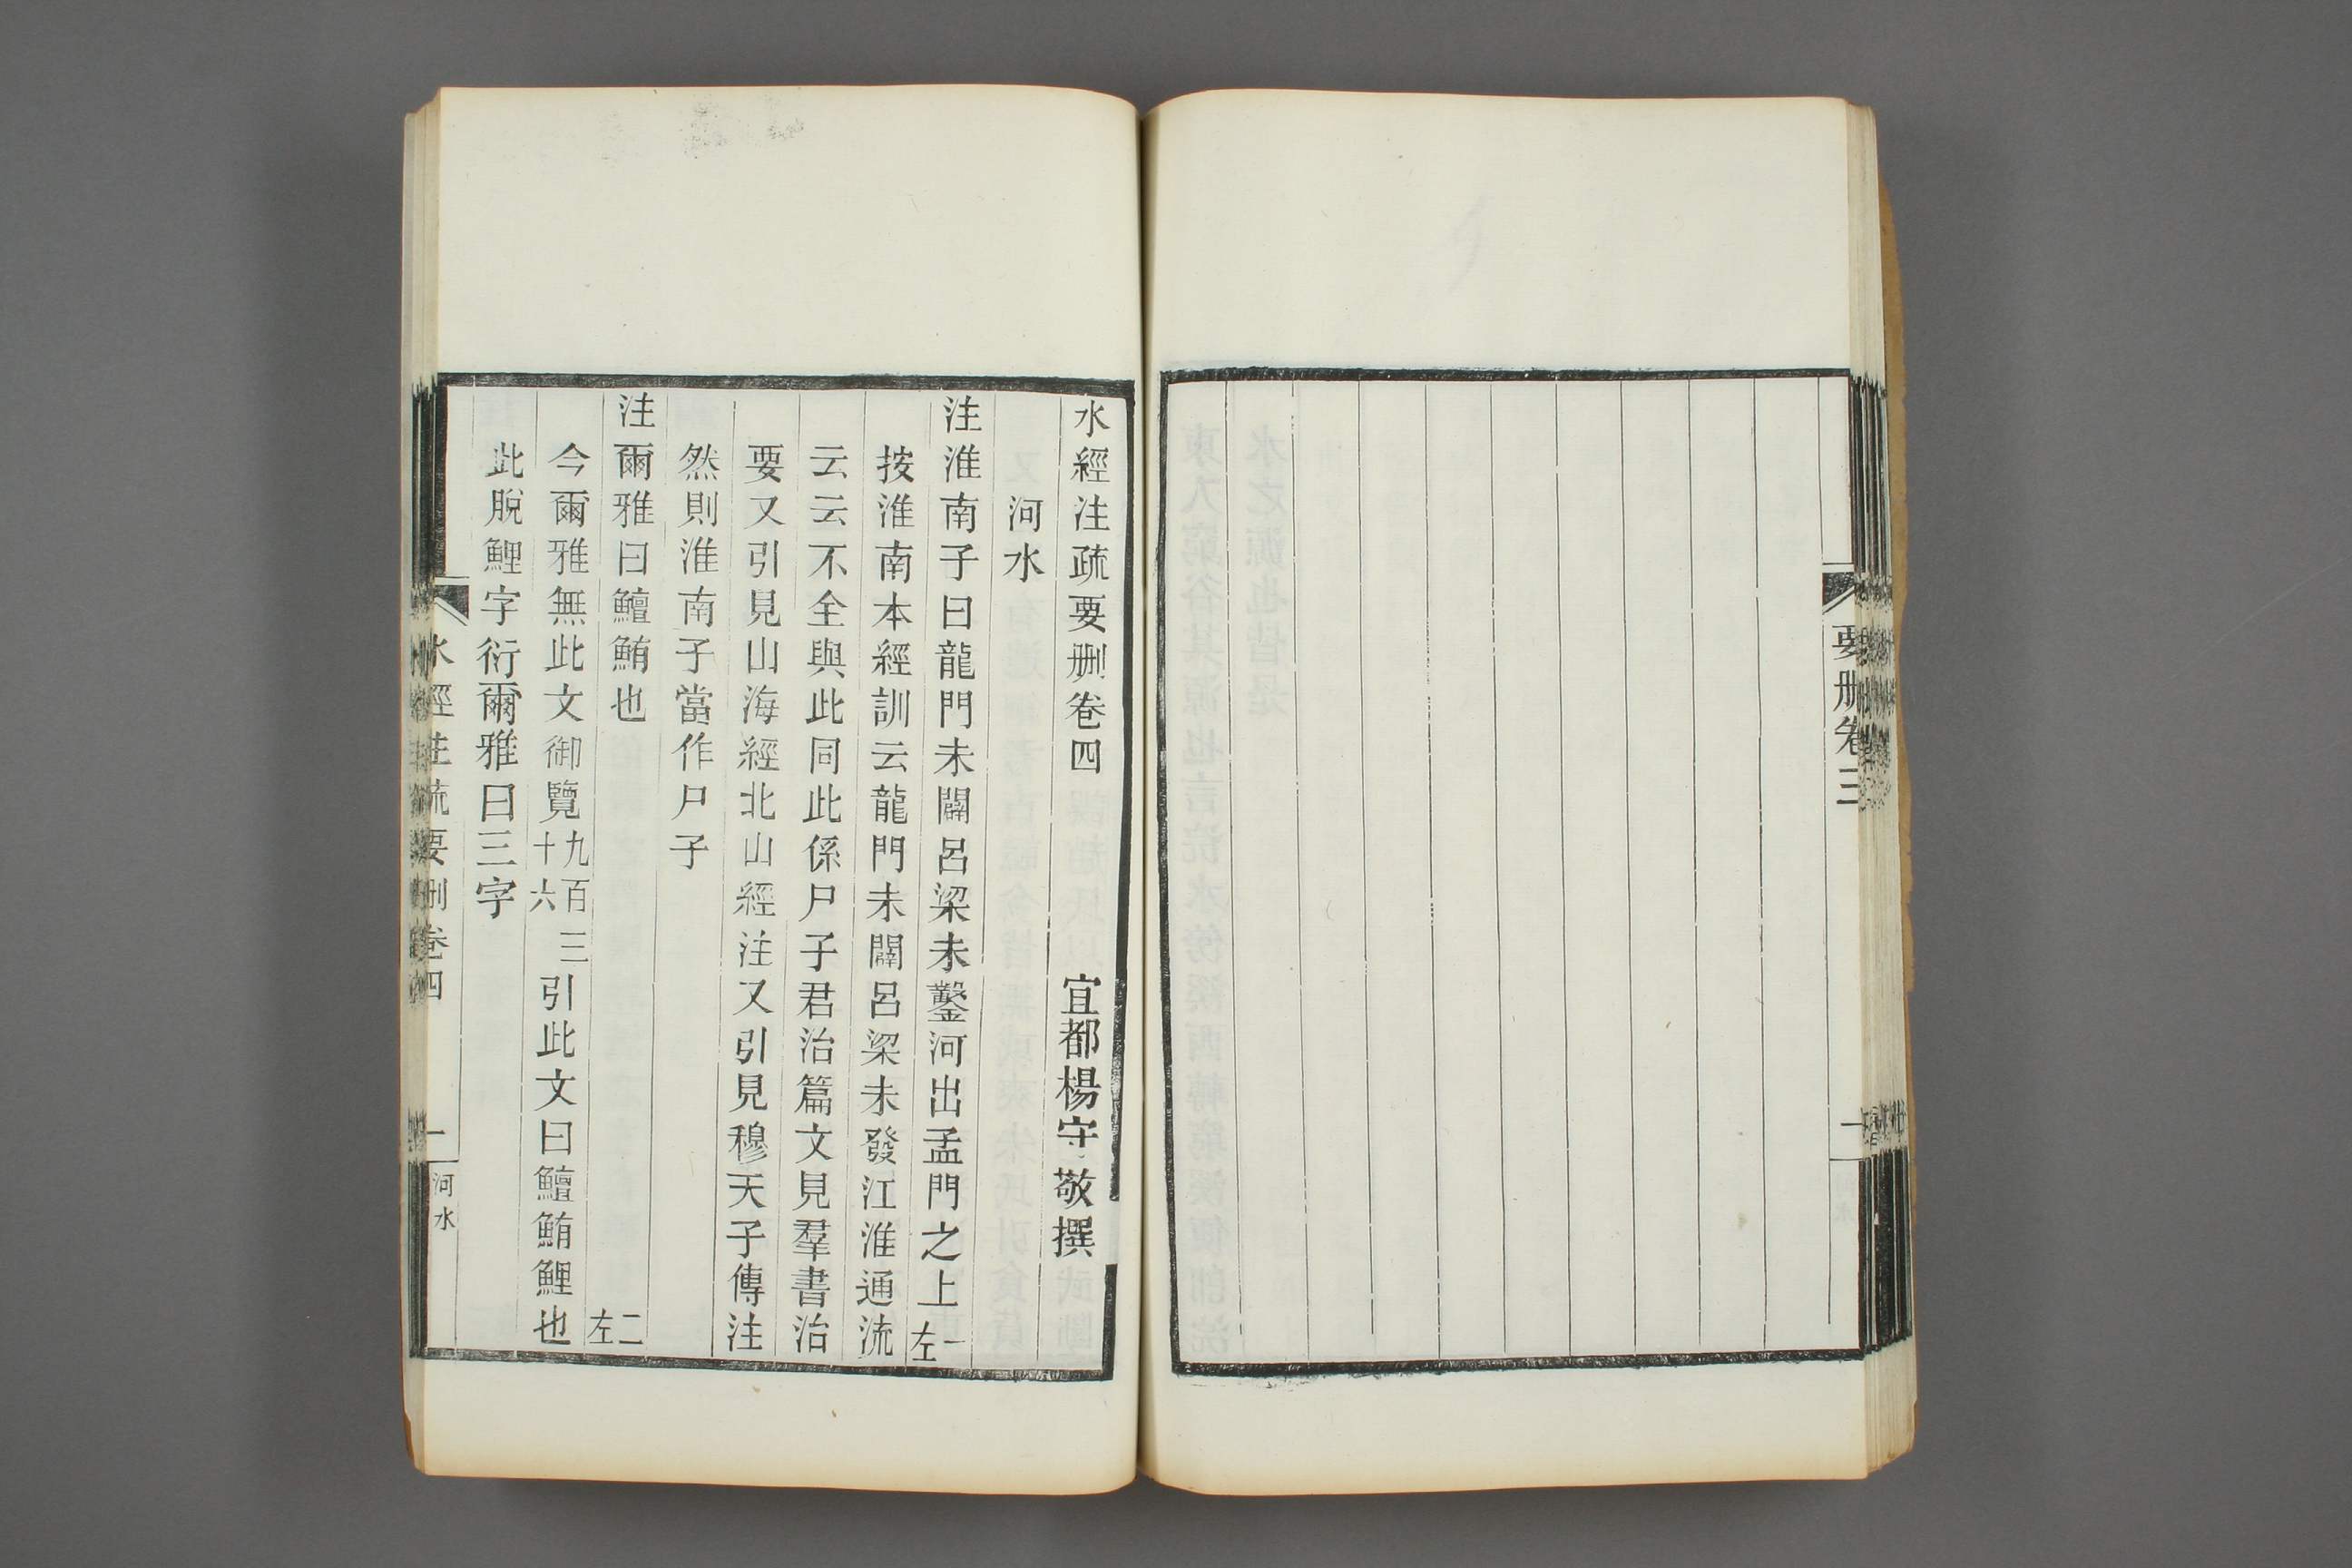 要刪卷三
水經注疏要刪卷四
宜都楊守敬撰
河水
注淮南子曰龍門未闢呂梁未鑿河出孟門之上一左
按淮南本經訓云龍門未闢呂梁未發江淮通流
云云不全與此同此係尸子君治篇文見羣書治
要又引見山海經北山經注又引見穆天子傳注
然則淮南子當作尸子
注爾雅曰鱣鮪也二左
今爾雅無此文御覽九百三十六引此文曰鱣鮪鯉也
此脫鯉字衍爾雅曰三字
水經注疏要刪卷四
一
河水